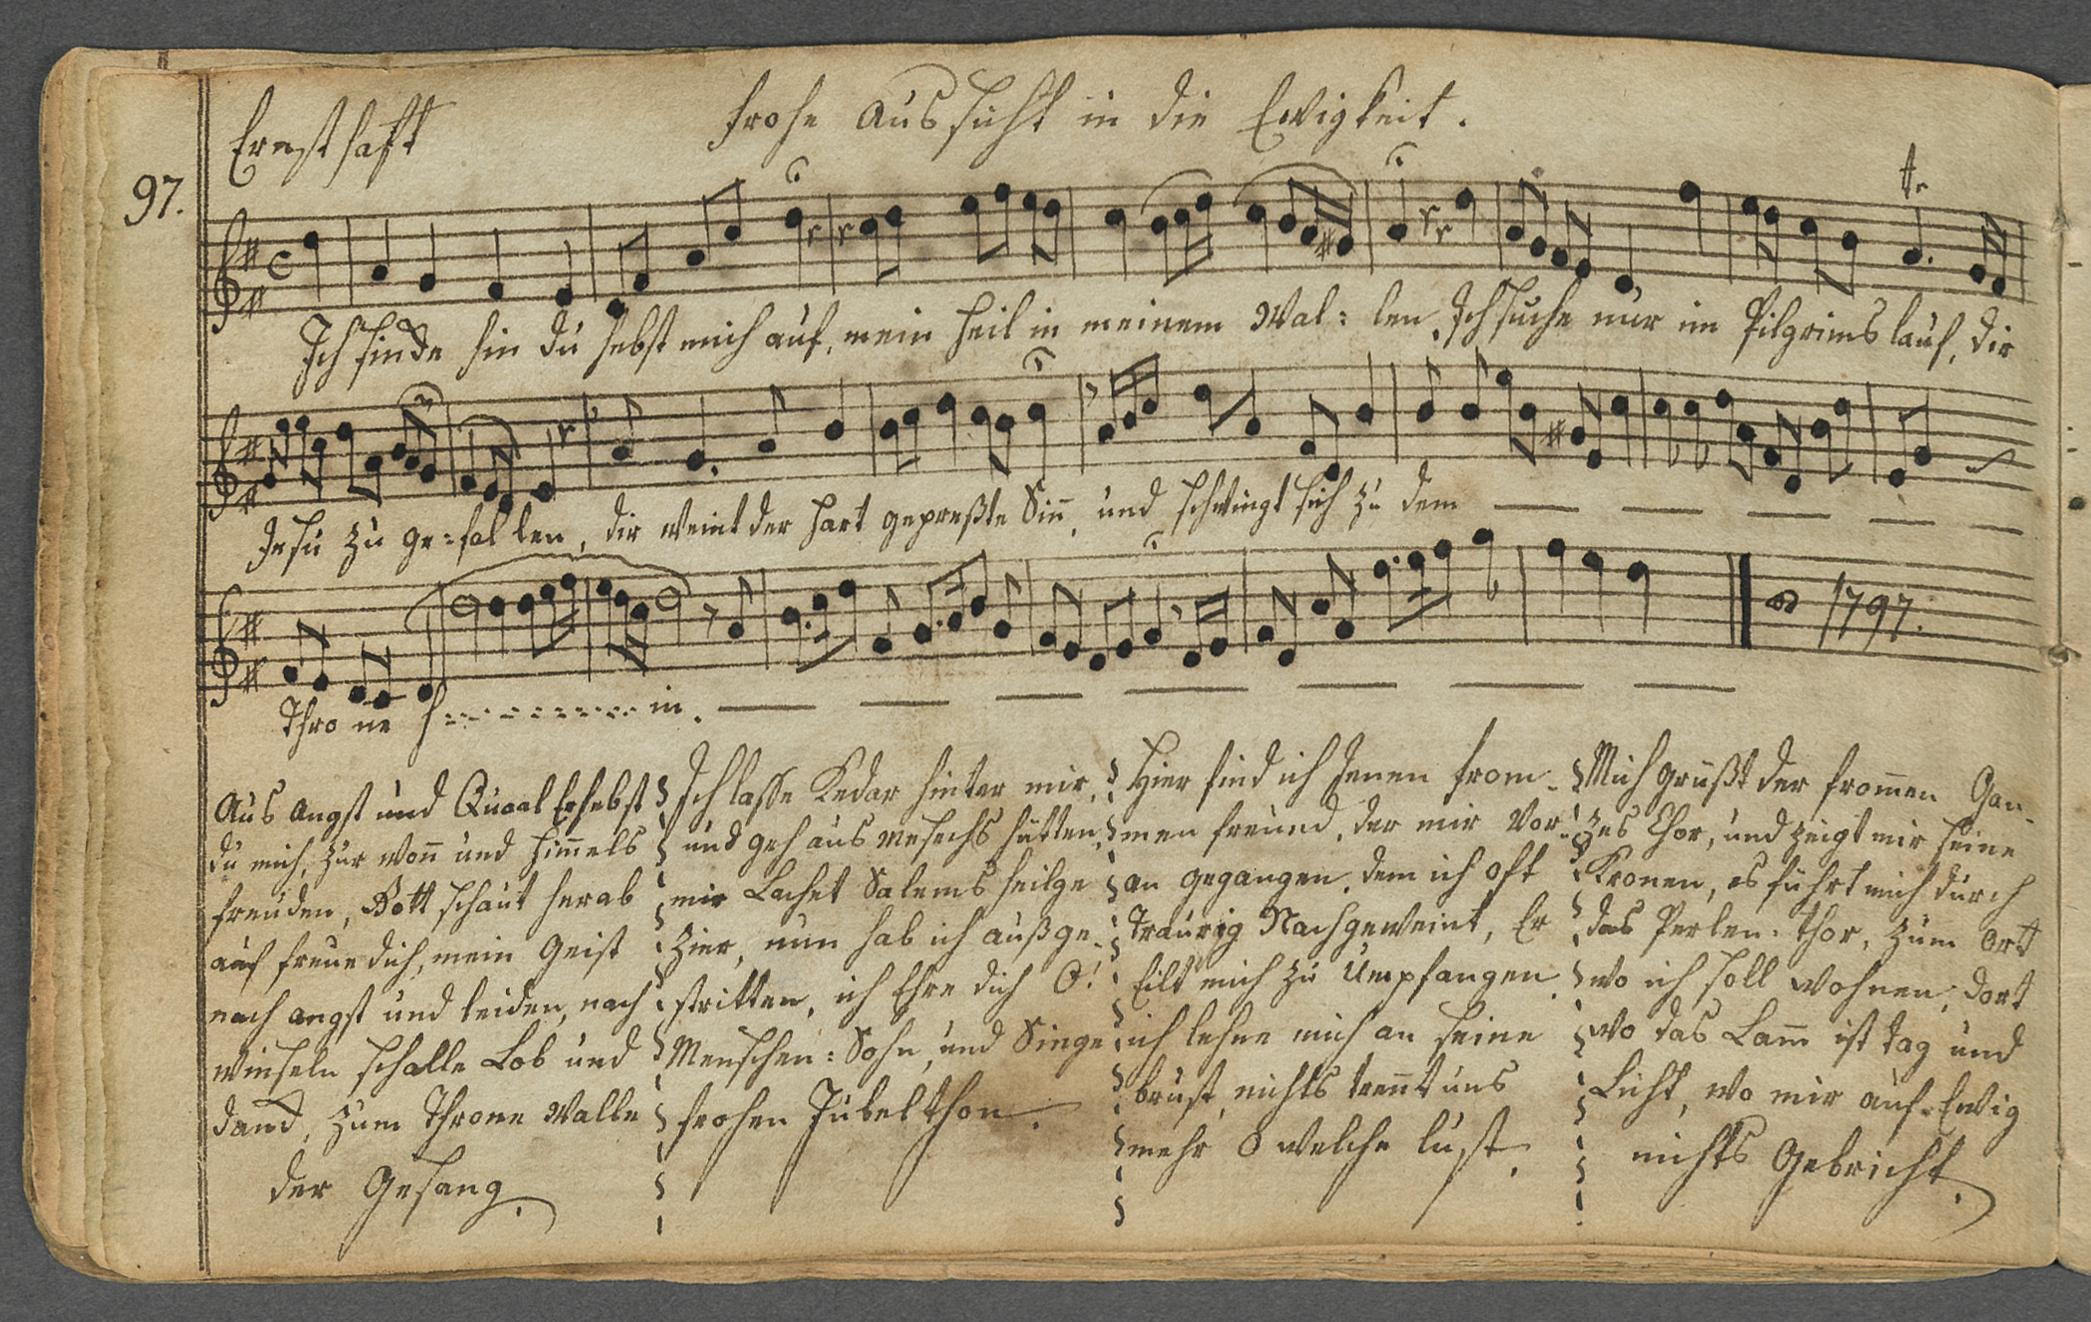 Ernsthaft
frohe Aussicht in die Ewigkeit.
97.
tr
Ich sinke hin du hebst mich auf, mein Heil in meinem Wal= len. Ich suche nur im Pilgrims lauf, dir
Jesu zu ge=fal len, dir weint der hart gepreßte Sin̄, und schwingt sich zu dem
Thro ne h in.
1797.
Aus Angst und Quaal Erhebst
du mich, zur won̄ und him̄els
freuden, Gott schaut herab
auf freue dich, mein Geist
nach angst und leiden, nach
winseln schalle Lob und
danck, zum Throne walle
der Gesang.
Ich lasse Kedar hinter mir,
und geh aus mesechs hütten,
mir Lachet Salems heilge
Zier, nun hab ich außge-
stritten, ich Ehre dich O!
Menschen=Sohn, und Singe
frohen Jubelthon.
Hier find ich Jenen from-
men freund, der mir Vor-
an gegangen, dem ich oft
traurig Nachgeweint, Er
Eilt mich zu Umpfangen
ich lehne mich an seine
brust, nichts tren̄t uns
mehr O welche lust.
Mich grüßt der from̄en Gan-
zes Chor, und zeigt mir seine
Kronen, es führt mich durch
das Perlen=thor, zum Ort
wo ich soll wohnen, dort
wo das Lam̄ ist tag und
Licht, wo mir auf Ewig
nichts Gebricht.